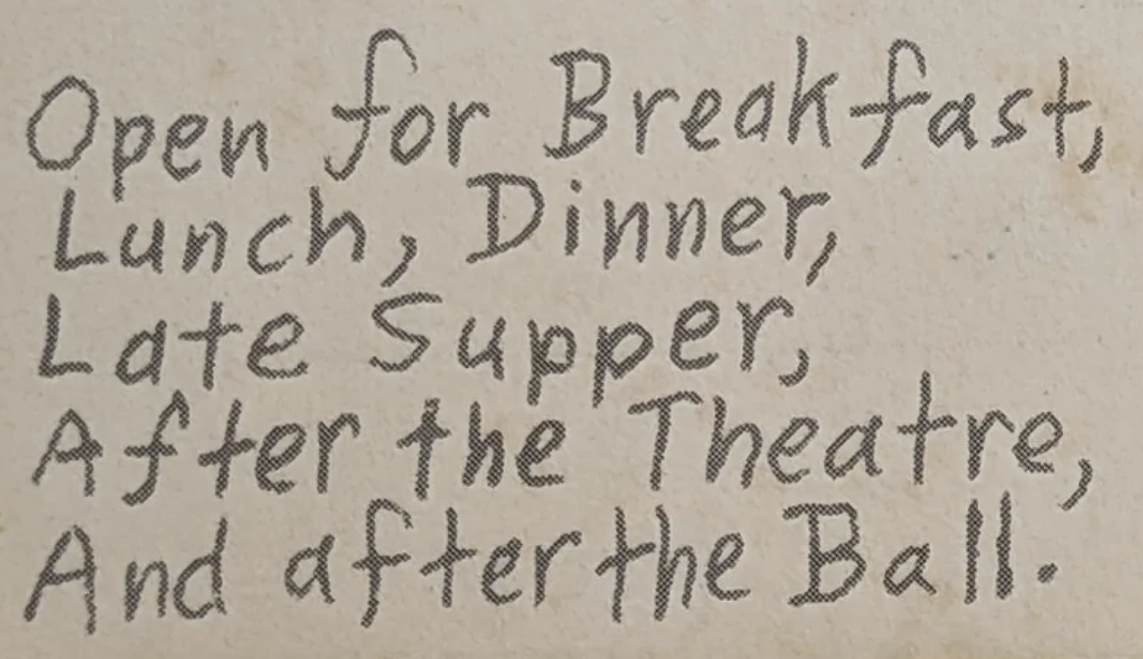 Open for Breakfast,
Lunch, Dinner,
Late Supper,
After the Theatre,
And after the Ball.